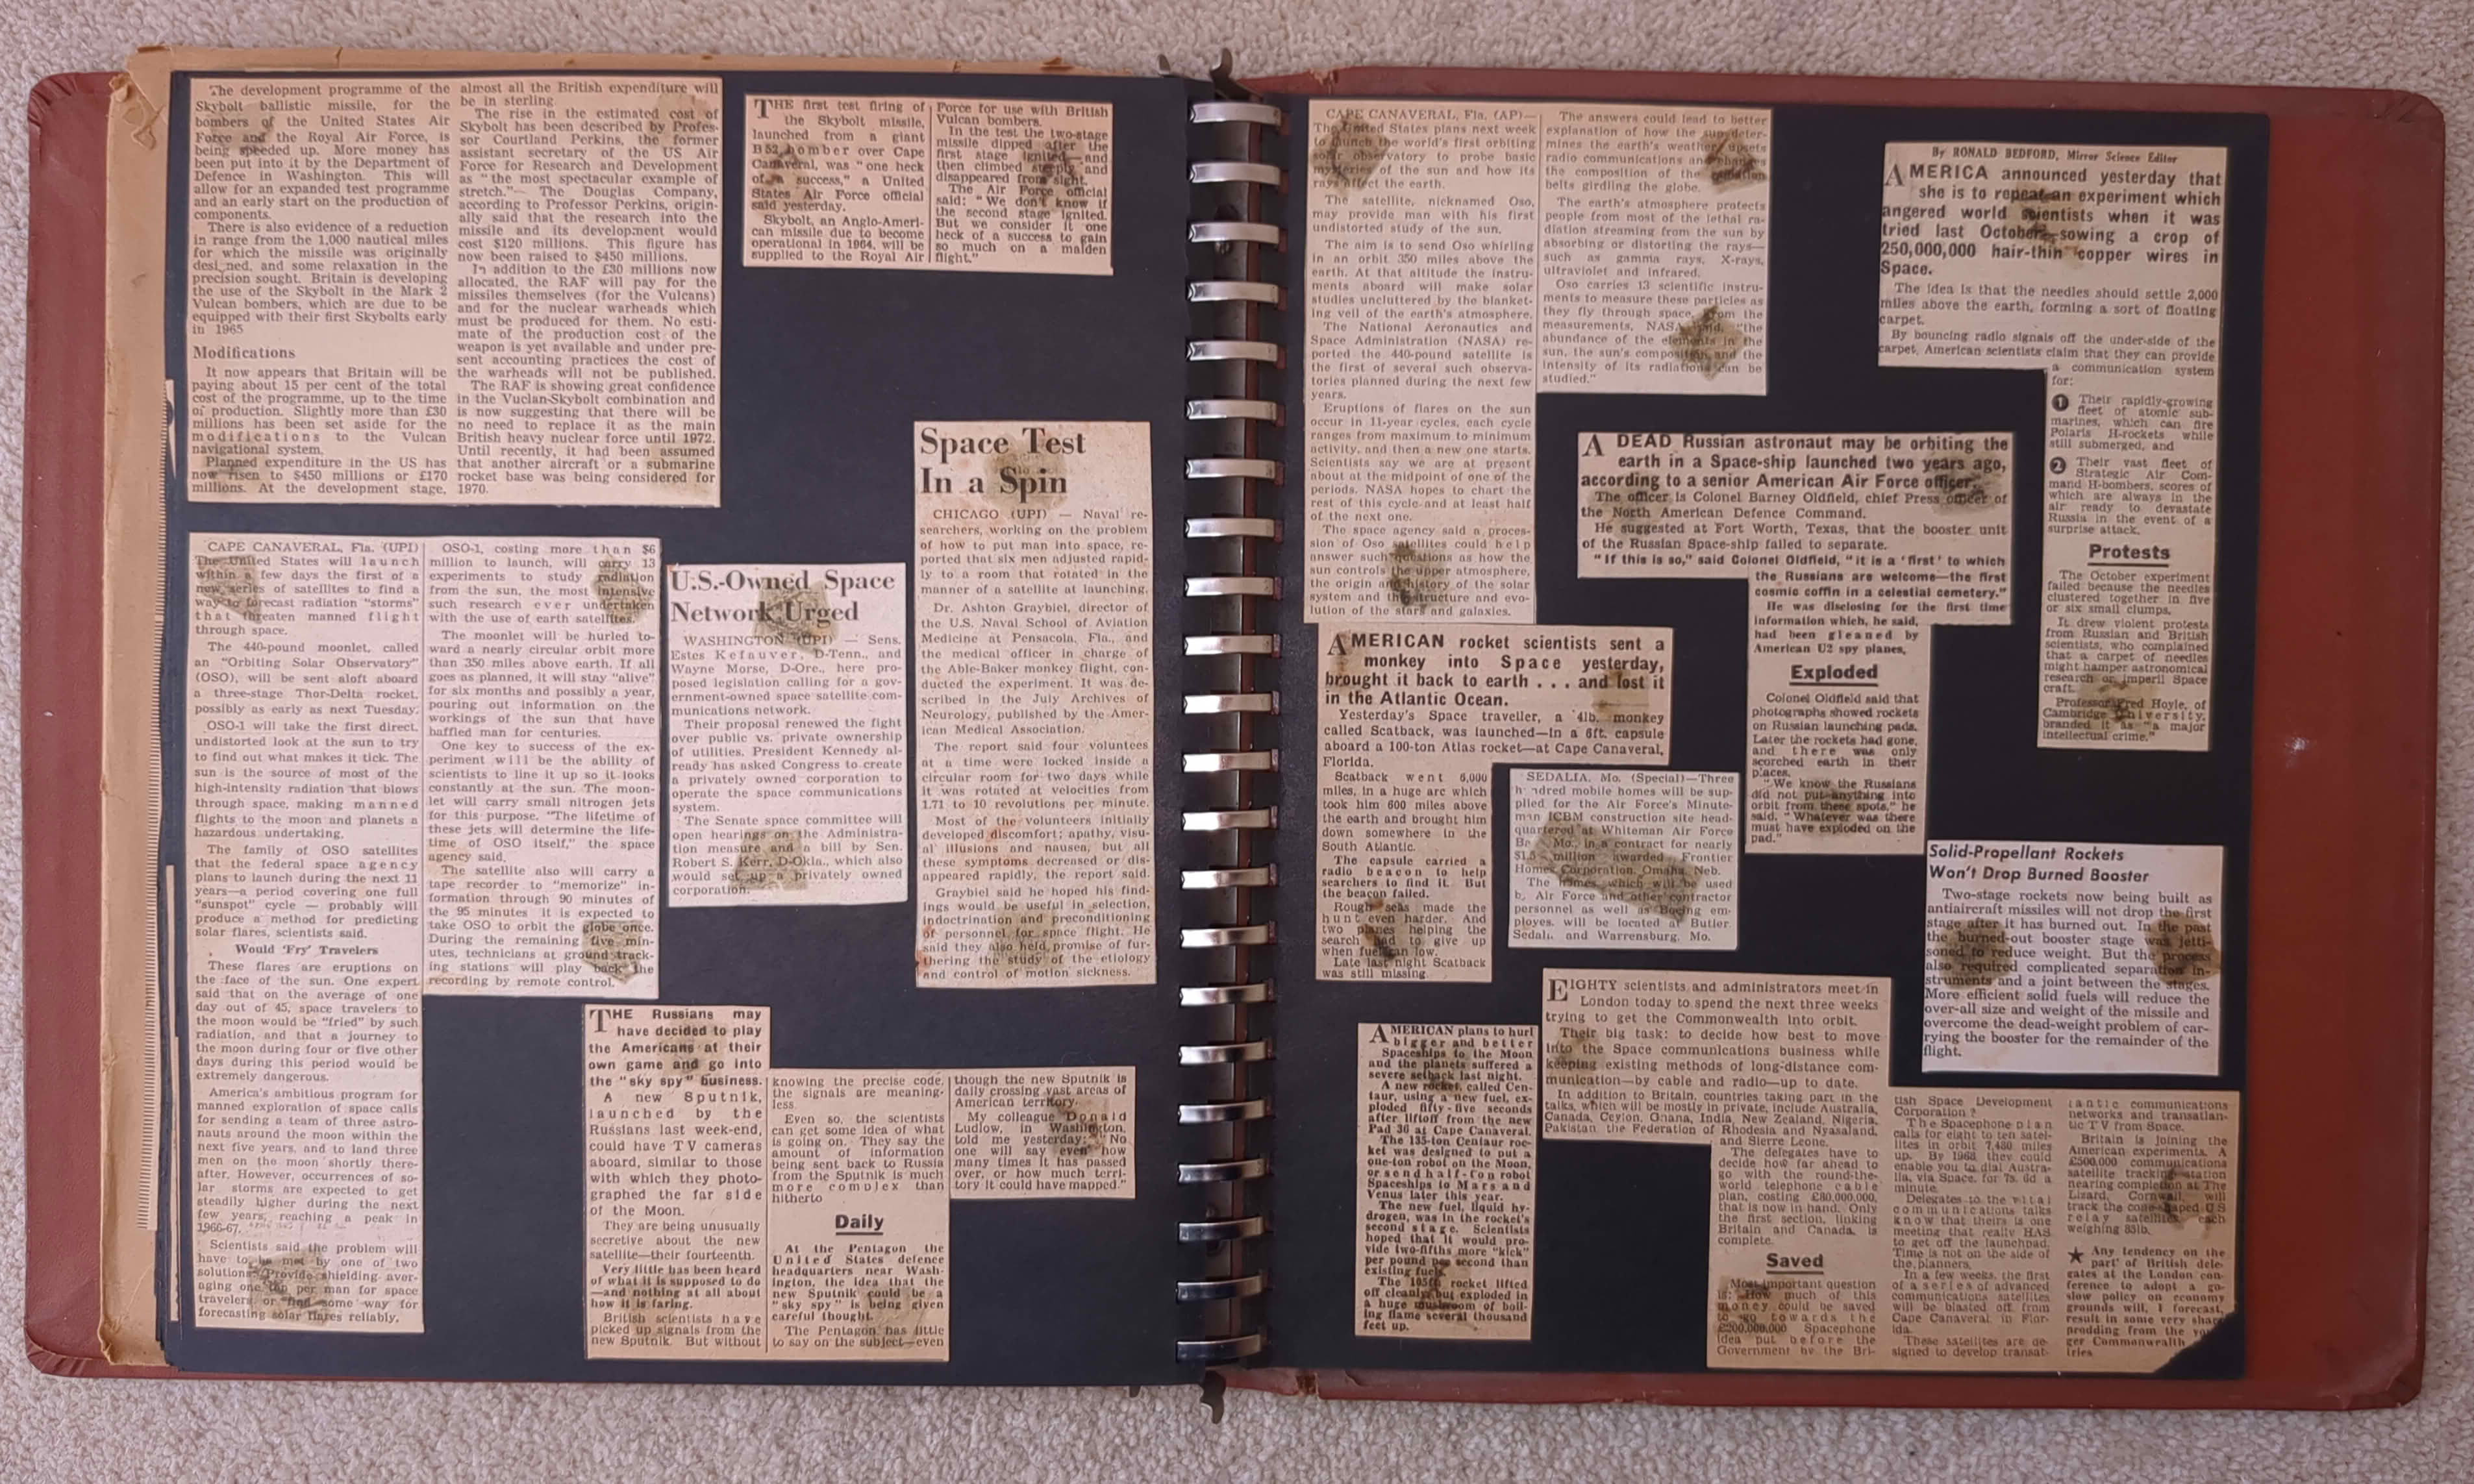 The development programme of the
Skybolt ballistic missile, for the
bombers of the United States Air
Force and the Royal Air Force, is
being speeded up. More money has
been put into it by the Department of
Defence in Washington. This will
allow for an expanded test programme
and an early start on the production of
components.
There is also evidence of a reduction
in range from the 1,000 nautical miles
for which the missile was originally
designed, and some relaxation in the
precision sought. Britain is developing
the use of the Skybolt in the Mark 2
Vulcan bombers, which are due to be
equipped with their first Skybolts early
in 1965
Modifications
It now appears that Britain will be
paying about 15 per cent of the total
cost of the programme, up to the time
of production. Slightly more than £30
millions has been set aside for the
modifications to the Vulcan
navigational system.
Planned expenditure in the US has
now risen to $450 millions or £170
millions. At the development stage,
almost all the British expenditure will
be in sterling.
The rise in the estimated cost of
Skybolt has been described by Profes-
sor Courtland Perkins, the former
assistant secretary of the US Air
Force for Research and Development
as "the most spectacular example of
stretch."— The Douglas Company,
according to Professor Perkins, origin-
ally said that the research into the
missile and its development would
cost $120 millions. This figure has
now been raised to $450 millions.
In addition to the £30 millions now
allocated, the RAF will pay for the
missiles themselves (for the Vulcans)
and for the nuclear warheads which
must be produced for them. No esti-
mate of the production cost of the
weapon is yet available and under pre-
sent accounting practices the cost of
the warheads will not be published.
The RAF is showing great confidence
in the Vuclan-Skybolt combination and
is now suggesting that there will be
no need to replace it as the main
British heavy nuclear force until 1972.
Until recently, it had been assumed
that another aircraft or a submarine
rocket base was being considered for
1970.
THE first test firing of
the Skybolt missile,
launched from a giant
B52 bomber over Cape
Canaveral, was "one heck
of a success," a United
States Air Force official
said yesterday.
Skybolt, an Anglo-Ameri-
can missile due to become
operational in 1964, will be
supplied to the Royal Air
Force for use with British
Vulcan bombers.
In the test the two-stage
missile dipped after the
first stage ignited—and
then climbed steeply and
disappeared from sight.
The Air Force official
said: "We don't know if
the second stage ignited.
But we consider it one
heck of a success to gain
so much on a maiden
flight."
CAPE CANAVERAL, Fla. (UPI)
The United States will launch
within a few days the first of a
new series of satellites to find a
way to forecast radiation "storms"
that threaten manned flight
through space.
The 440-pound moonlet, called
an "Orbiting Solar Observatory"
(OSO), will be sent aloft aboard
a three-stage Thor-Delta rocket,
possibly as early as next Tuesday.
OSO-1 will take the first direct,
undistorted look at the sun to try
to find out what makes it tick. The
sun is the source of most of the
high-intensity radiation that blows
through space, making manned
flights to the moon and planets a
hazardous undertaking.
The family of OSO satellites
that the federal space agency
plans to launch during the next 11
years—a period covering one full
"sunspot" cycle — probably will
produce a method for predicting
solar flares, scientists said.
Would 'Fry' Travelers
These flares are eruptions on
the face of the sun. One expert
said that on the average of one
day out of 45, space travelers to
the moon would be "fried" by such
radiation, and that a journey to
the moon during four or five other
days during this period would be
extremely dangerous.
America's ambitious program for
manned exploration of space calls
for sending a team of three astro-
nauts around the moon within the
next five years, and to land three
men on the moon shortly there-
after. However, occurrences of so-
lar storms are expected to get
steadily higher during the next
few years, reaching a peak in
1966-67.
Scientists said the problem will
have to be met by one of two
solutions: Provide shielding aver-
aging one ton per man for space
travelers or find some way for
forecasting solar flares reliably.
OSO-1, costing more than $6
million to launch, will carry 13
experiments to study radiation
from the sun, the most intensive
such research ever undertaken
with the use of earth satellites.
The moonlet will be hurled to-
ward a nearly circular orbit more
than 350 miles above earth. If all
goes as planned, it will stay "alive"
for six months and possibly a year,
pouring out information on the
workings of the sun that have
baffled man for centuries.
One key to success of the ex-
periment will be the ability of
scientists to line it up so it looks
constantly at the sun. The moon-
let will carry small nitrogen jets
for this purpose. "The lifetime of
these jets will determine the life-
time of OSO itself," the space
agency said.
The satellite also will carry a
tape recorder to "memorize" in-
formation through 90 minutes of
the 95 minutes it is expected to
take OSO to orbit the globe once.
During the remaining five min-
utes, technicians at ground track-
ing stations will play back the
recording by remote control.
U.S.-Owned Space
Network Urged
WASHINGTON (UPI) — Sens.
Estes Kefauver, D-Tenn., and
Wayne Morse, D-Ore., here pro-
posed legislation calling for a gov-
ernment-owned space satellite com-
munications network.
Their proposal renewed the fight
over public vs. private ownership
of utilities. President Kennedy al-
ready has asked Congress to create
a privately owned corporation to
operate the space communications
system.
The Senate space committee will
open hearings on the Administra-
tion measure and a bill by Sen.
Robert S. Kerr, D-Okla., which also
would set up a privately owned
corporation.
Space Test
In a Spin
CHICAGO (UPI) — Naval re-
searchers, working on the problem
of how to put man into space, re-
ported that six men adjusted rapid-
ly to a room that rotated in the
manner of a satellite at launching.
Dr. Ashton Graybiel, director of
the U.S. Naval School of Aviation
Medicine at Pensacola, Fla., and
the medical officer in charge of
the Able-Baker monkey flight, con-
ducted the experiment. It was de-
scribed in the July Archives of
Neurology, published by the Amer-
ican Medical Association.
The report said four volunteers
at a time were locked inside a
circular room for two days while
it was rotated at velocities from
1.71 to 10 revolutions per minute.
Most of the volunteers initially
developed discomfort; apathy, visu-
al illusions and nausea, but all
these symptoms decreased or dis-
appeared rapidly, the report said.
Graybiel said he hoped his find-
ings would be useful in selection,
indoctrination and preconditioning
of personnel for space flight. He
said they also held promise of fur-
thering the study of the etiology
and control of motion sickness.
THE Russians may
have decided to play
the Americans at their
own game and go into
the "sky spy" business.
A new Sputnik,
launched by the
Russians last week-end,
could have TV cameras
aboard, similar to those
with which they photo-
graphed the far side
of the Moon.
They are being unusually
secretive about the new
satellite—their fourteenth.
Very little has been heard
of what it is supposed to do
—and nothing at all about
how it is faring.
British scientists have
picked up signals from the
new Sputnik. But without
knowing the precise code,
the signals are meaning-
less.
Even so, the scientists
can get some idea of what
is going on. They say the
amount of information
being sent back to Russia
from the Sputnik is much
more complex than
hitherto
Daily
At the Pentagon the
United States defence
headquarters near Wash-
ington, the idea that the
new Sputnik could be a
"sky spy" is being given
careful thought.
The Pentagon has little
to say on the subject—even
though the new Sputnik is
daily crossing vast areas of
American territory.
My colleague Donald
Ludlow, in Washington,
told me yesterday: "No
one will say even how
many times it has passed
over, or how much terri-
tory it could have mapped."
CAPE CANAVERAL, Fla. (AP)—
The United States plans next week
to launch the world's first orbiting
solar observatory to probe basic
mysteries of the sun and how its
rays affect the earth.
The satellite, nicknamed Oso,
may provide man with his first
undistorted study of the sun.
The aim is to send Oso whirling
in an orbit 350 miles above the
earth. At that altitude the instru-
ments aboard will make solar
studies uncluttered by the blanket-
ing veil of the earth's atmosphere.
The National Aeronautics and
Space Administration (NASA) re-
ported the 440-pound satellite is
the first of several such observa-
tories planned during the next few
years.
Eruptions of flares on the sun
occur in 11-year cycles, each cycle
ranges from maximum to minimum
activity, and then a new one starts.
Scientists say we are at present
about at the midpoint of one of the
periods. NASA hopes to chart the
rest of this cycle and at least half
of the next one.
The space agency said a proces-
sion of Oso satellites could help
answer such questions as how the
sun controls the upper atmosphere,
the origin and history of the solar
system and the structure and evo-
lution of the stars and galaxies.
The answers could lead to better
explanation of how the sun deter-
mines the earth's weather, upsets
radio communications and changes
the composition of the radiation
belts girdling the globe.
The earth's atmosphere protects
people from most of the lethal ra-
diation streaming from the sun by
absorbing or distorting the rays—
such as gamma rays, X-rays,
ultraviolet and infrared.
Oso carries 13 scientific instru-
ments to measure these particles as
they fly through space. From the
measurements, NASA said, "the
abundance of the elements in the
sun, the sun's composition and the
intensity of its radiation can be
studied."
By RONALD BEDFORD, Mirror Science Editor
AMERICA announced yesterday that
she is to repeat an experiment which
angered world scientists when it was
tried last October—sowing a crop of
250,000,000 hair-thin copper wires in
Space.
The idea is that the needles should settle 2,000
miles above the earth, forming a sort of floating
carpet.
By bouncing radio signals off the under-side of the
carpet, American scientists claim that they can provide
a communication system
for:
1 Their rapidly-growing
fleet of atomic sub-
marines, which can fire
Polaris H-rockets while
still submerged, and
2 Their vast fleet of
Strategic Air Com-
mand H-bombers, scores of
which are always in the
air ready to devastate
Russia in the event of a
surprise attack.
Protests
The October experiment
failed because the needles
clustered together in five
or six small clumps.
It drew violent protests
from Russian and British
scientists, who complained
that a carpet of needles
might hamper astronomical
research or imperil Space
craft.
Professor Fred Hoyle, of
Cambridge University,
branded it as "a major
intellectual crime."
A DEAD Russian astronaut may be orbiting the
earth in a Space-ship launched two years ago,
according to a senior American Air Force officer.
The officer is Colonel Barney Oldfield, chief Press officer of
the North American Defence Command.
He suggested at Fort Worth, Texas, that the booster unit
of the Russian Space-ship failed to separate.
"If this is so," said Colonel Oldfield, "it is a 'first' to which
the Russians are welcome—the first
cosmic coffin in a celestial cemetery."
He was disclosing for the first time
information which, he said,
had been gleaned by
American U2 spy planes.
Exploded
Colonel Oldfield said that
photographs showed rockets
on Russian launching pads.
Later the rockets had gone,
and there was only
scorched earth in their
places.
"We know the Russians
did not put anything into
orbit from these spots," he
said. "Whatever was there
must have exploded on the
pad."
AMERICAN rocket scientists sent a
monkey into Space yesterday,
brought it back to earth . . . and lost it
in the Atlantic Ocean.
Yesterday's Space traveller, a 4lb. monkey
called Scatback, was launched—in a 6ft. capsule
aboard a 100-ton Atlas rocket—at Cape Canaveral,
Florida.
Scatback went 6,000
miles, in a huge arc which
took him 600 miles above
the earth and brought him
down somewhere in the
South Atlantic.
The capsule carried a
radio beacon to help
searchers to find it. But
the beacon failed.
Rough seas made the
hunt even harder. And
two planes helping the
search had to give up
when fuel ran low.
Late last night Scatback
was still missing.
SEDALIA, Mo. (Special)—Three
hundred mobile homes will be sup-
plied for the Air Force's Minute-
man ICBM construction site head-
quartered at Whiteman Air Force
Mo., in a contract for nearly
$1.5 million awarded Frontier
Homes Corporation, Omaha, Neb.
The homes, which will be used
by Air Force and other contractor
personnel as well as Boeing em-
ployes, will be located at Butler
Sedalia and Warrensburg, Mo.
Solid-Propellant Rockets
Won't Drop Burned Booster
Two-stage rockets now being built as
antiaircraft missiles will not drop the first
stage after it has burned out. In the past
the burned-out booster stage was jetti-
soned to reduce weight. But the process
also required complicated separation in-
struments and a joint between the stages.
More efficient solid fuels will reduce the
over-all size and weight of the missile and
overcome the dead-weight problem of car-
rying the booster for the remainder of the
flight.
AMERICAN plans to hurl
bigger and better
Spaceships to the Moon
and the planets suffered a
severe setback last night.
A new rocket, called Cen-
taur, using a new fuel, ex-
ploded fifty-five seconds
after liftoff from the new
Pad 36 at Cape Canaveral.
The 135-ton Centaur roc-
ket was designed to put a
one-ton robot on the Moon,
or send half-ton robot
Spaceships to Mars and
Venus later this year.
The new fuel, liquid hy-
drogen, was in the rocket's
second stage. Scientists
hoped that it would pro-
vide two-fifths more "kick"
per pound per second than
existing fuels.
The 105ft. rocket lifted
off cleanly but exploded in
a huge mushroom of boil-
ing flame several thousand
feet up.
EIGHTY scientists and administrators meet in
London today to spend the next three weeks
trying to get the Commonwealth into orbit.
Their big task: to decide how best to move
into the Space communications business while
keeping existing methods of long-distance com-
munication—by cable and radio—up to date.
In addition to Britain, countries taking part in the
talks, which will be mostly in private, include Australia,
Canada, Ceylon, Ghana, India, New Zealand, Nigeria,
Pakistan, the Federation of Rhodesia and Nyasaland,
and Sierre Leone.
The delegates have to
decide how far ahead to
go with the round-the-
world telephone cable
plan, costing £80,000,000,
that is now in hand. Only
the first section, linking
Britain and Canada, is
complete.
Saved
Most important question
is: How much of this
money could be saved
to go towards the
£200,000,000 Spacephone
idea put before the
Government by the Bri-
tish Space Development
Corporation?
The Spacephone plan
calls for eight to ten satel-
lites in orbit 7,450 miles
up. By 1968 they could
enable you to dial Austra-
lia, via Space, for 7s. 6d a
minute.
Delegates to the vital
communications talks
know that theirs is one
meeting that really HAS
to get off the launchpad.
Time is not on the side of
the planners.
In a few weeks, the first
of a series of advanced
communications satellites
will be blasted off from
Cape Canaveral in Flor-
ida.
These satellites are de-
signed to develop transat-
lantic communications
networks and transatlan-
tic TV from Space.
Britain is joining the
American experiments. A
£500,000 communications
satellite tracking station
nearing completion at The
Lizard, Cornwall, will
track the cone-shaped US
relay satellites each
weighing 85lb.
★ Any tendency on the
part of British dele-
gates at the London con-
ference to adopt a go-
slow policy on economy
grounds will, I forecast,
result in some very sharp
prodding from the
ger Commonwealth
tries